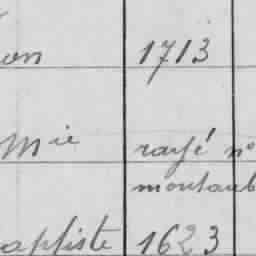 on 1713
Mie rayé n°
montaub
aptiste 1623